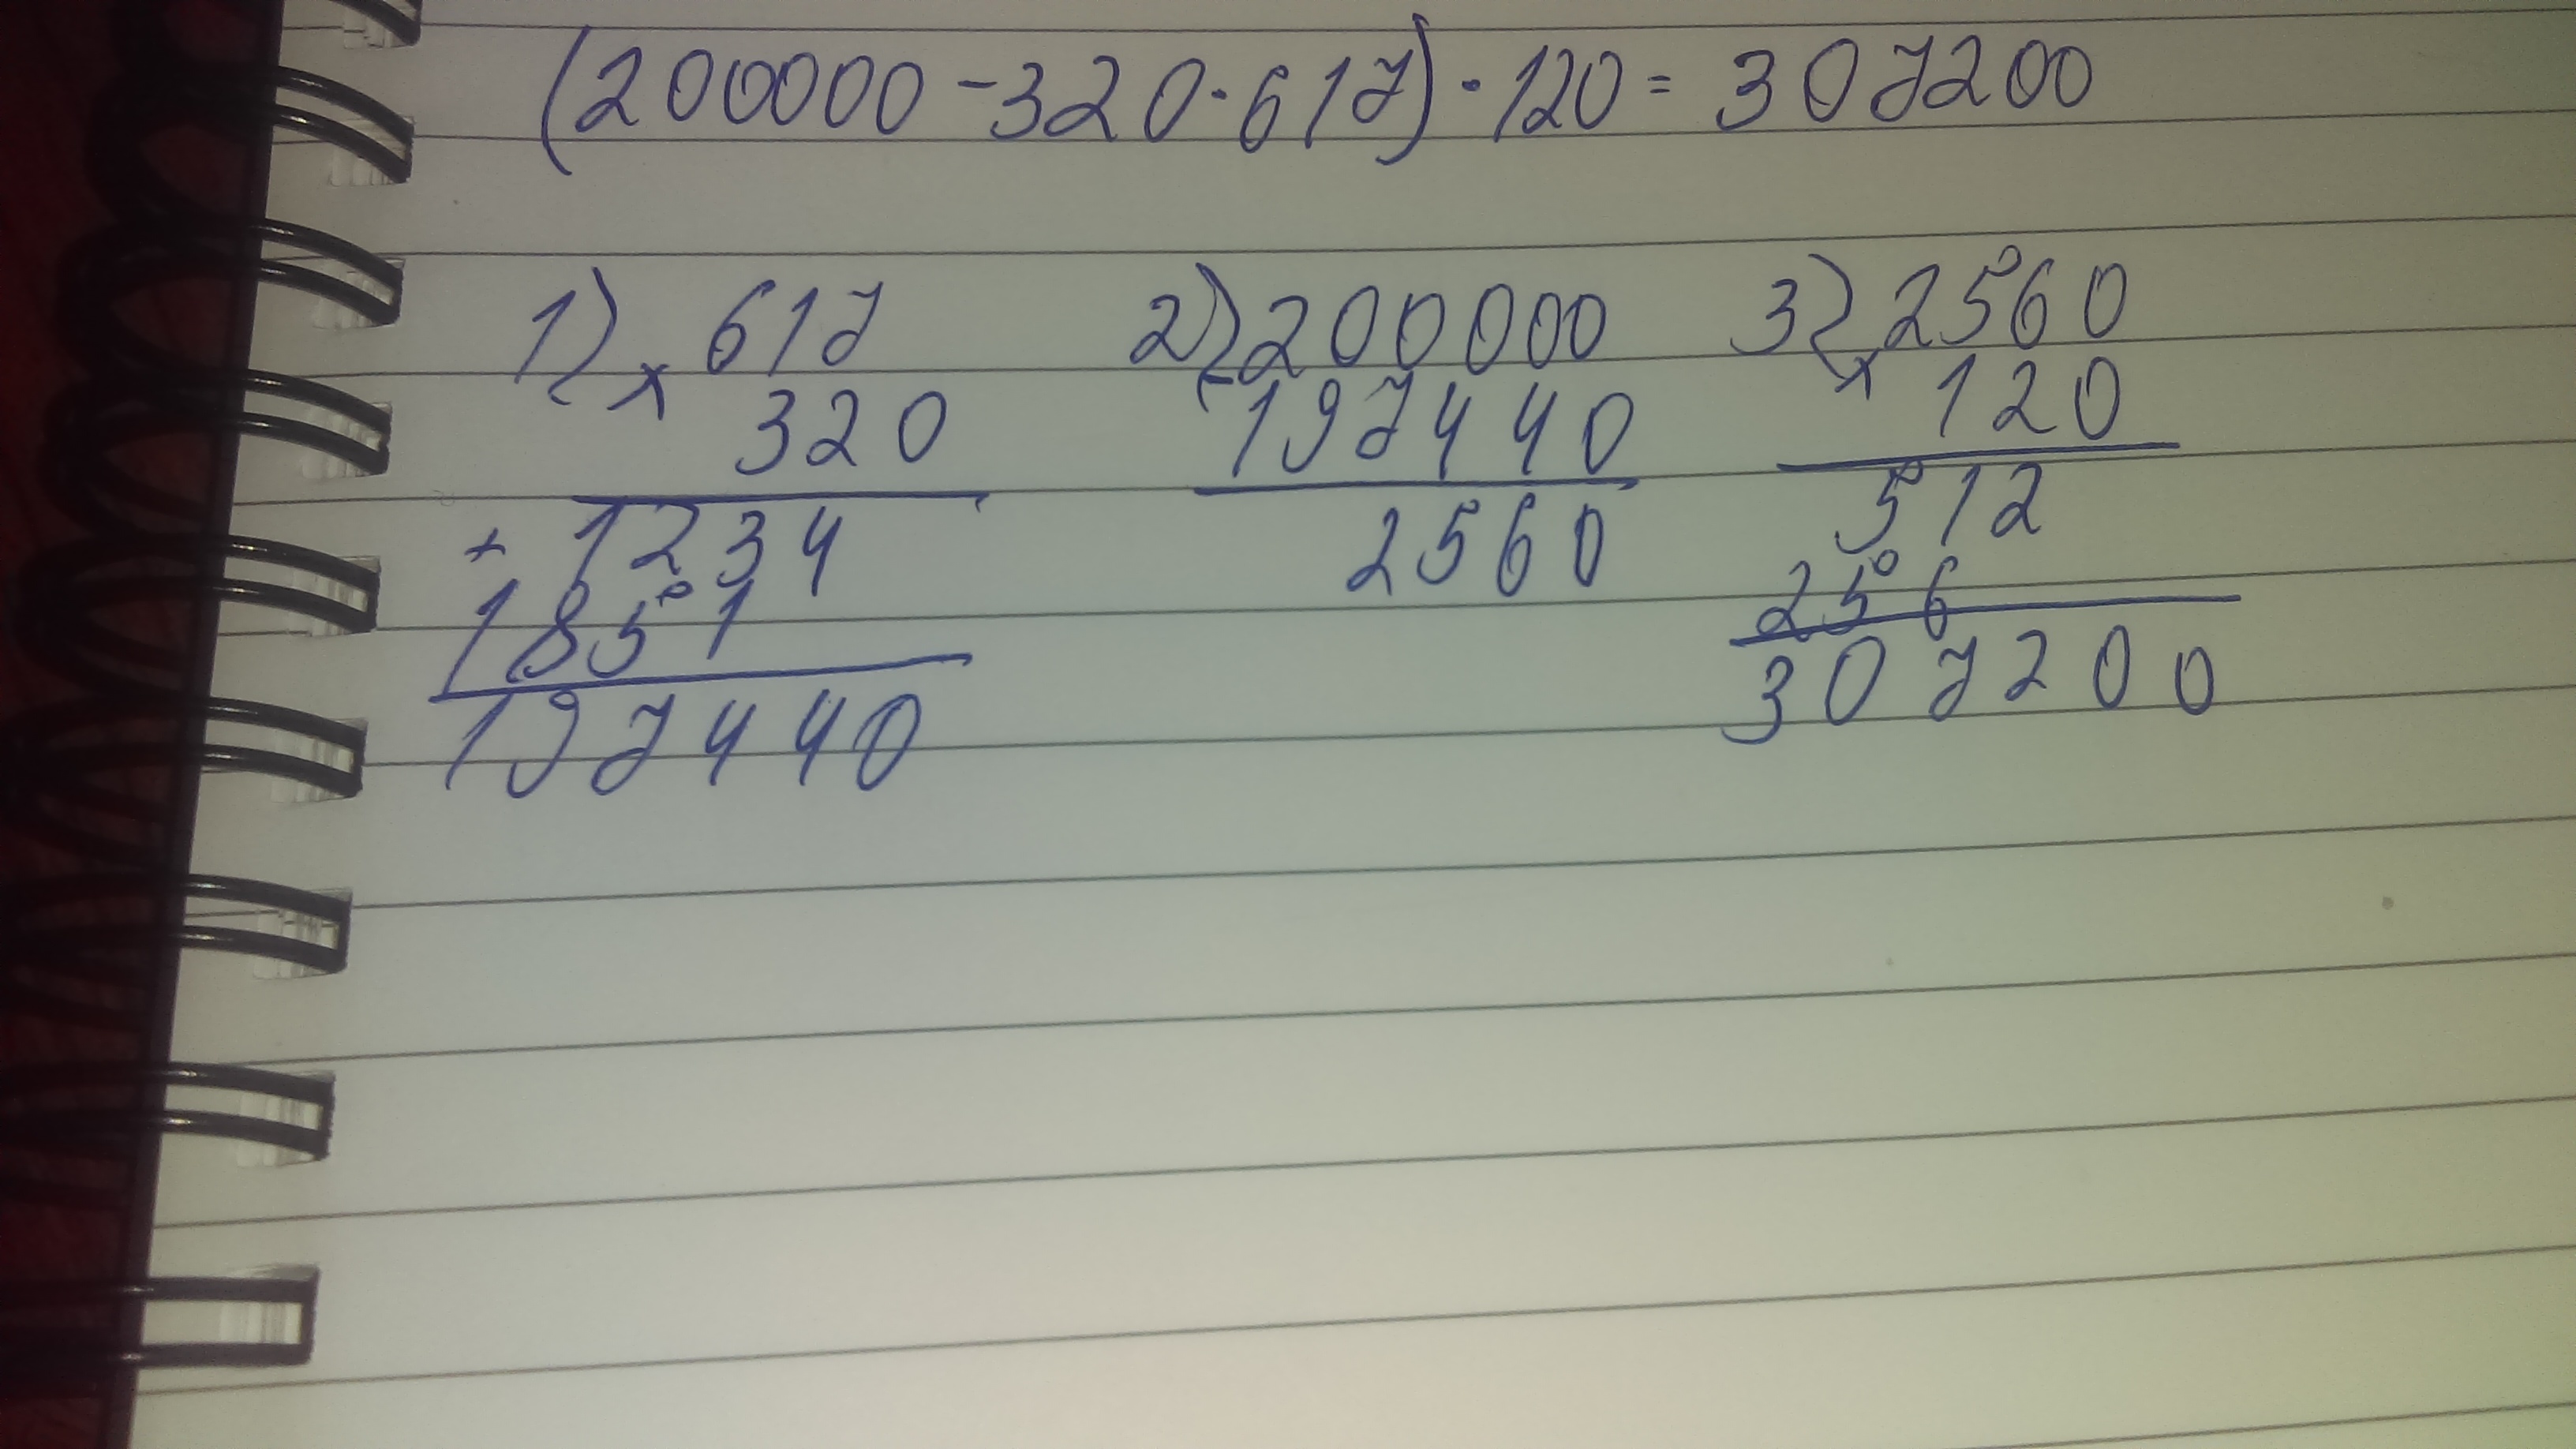 (200000-320·617)·120=307200
1) 617 2) 200000 3) 2560
x 320 - 197440 x 120
+ 1234 2560 512
1851 256
197440 307200